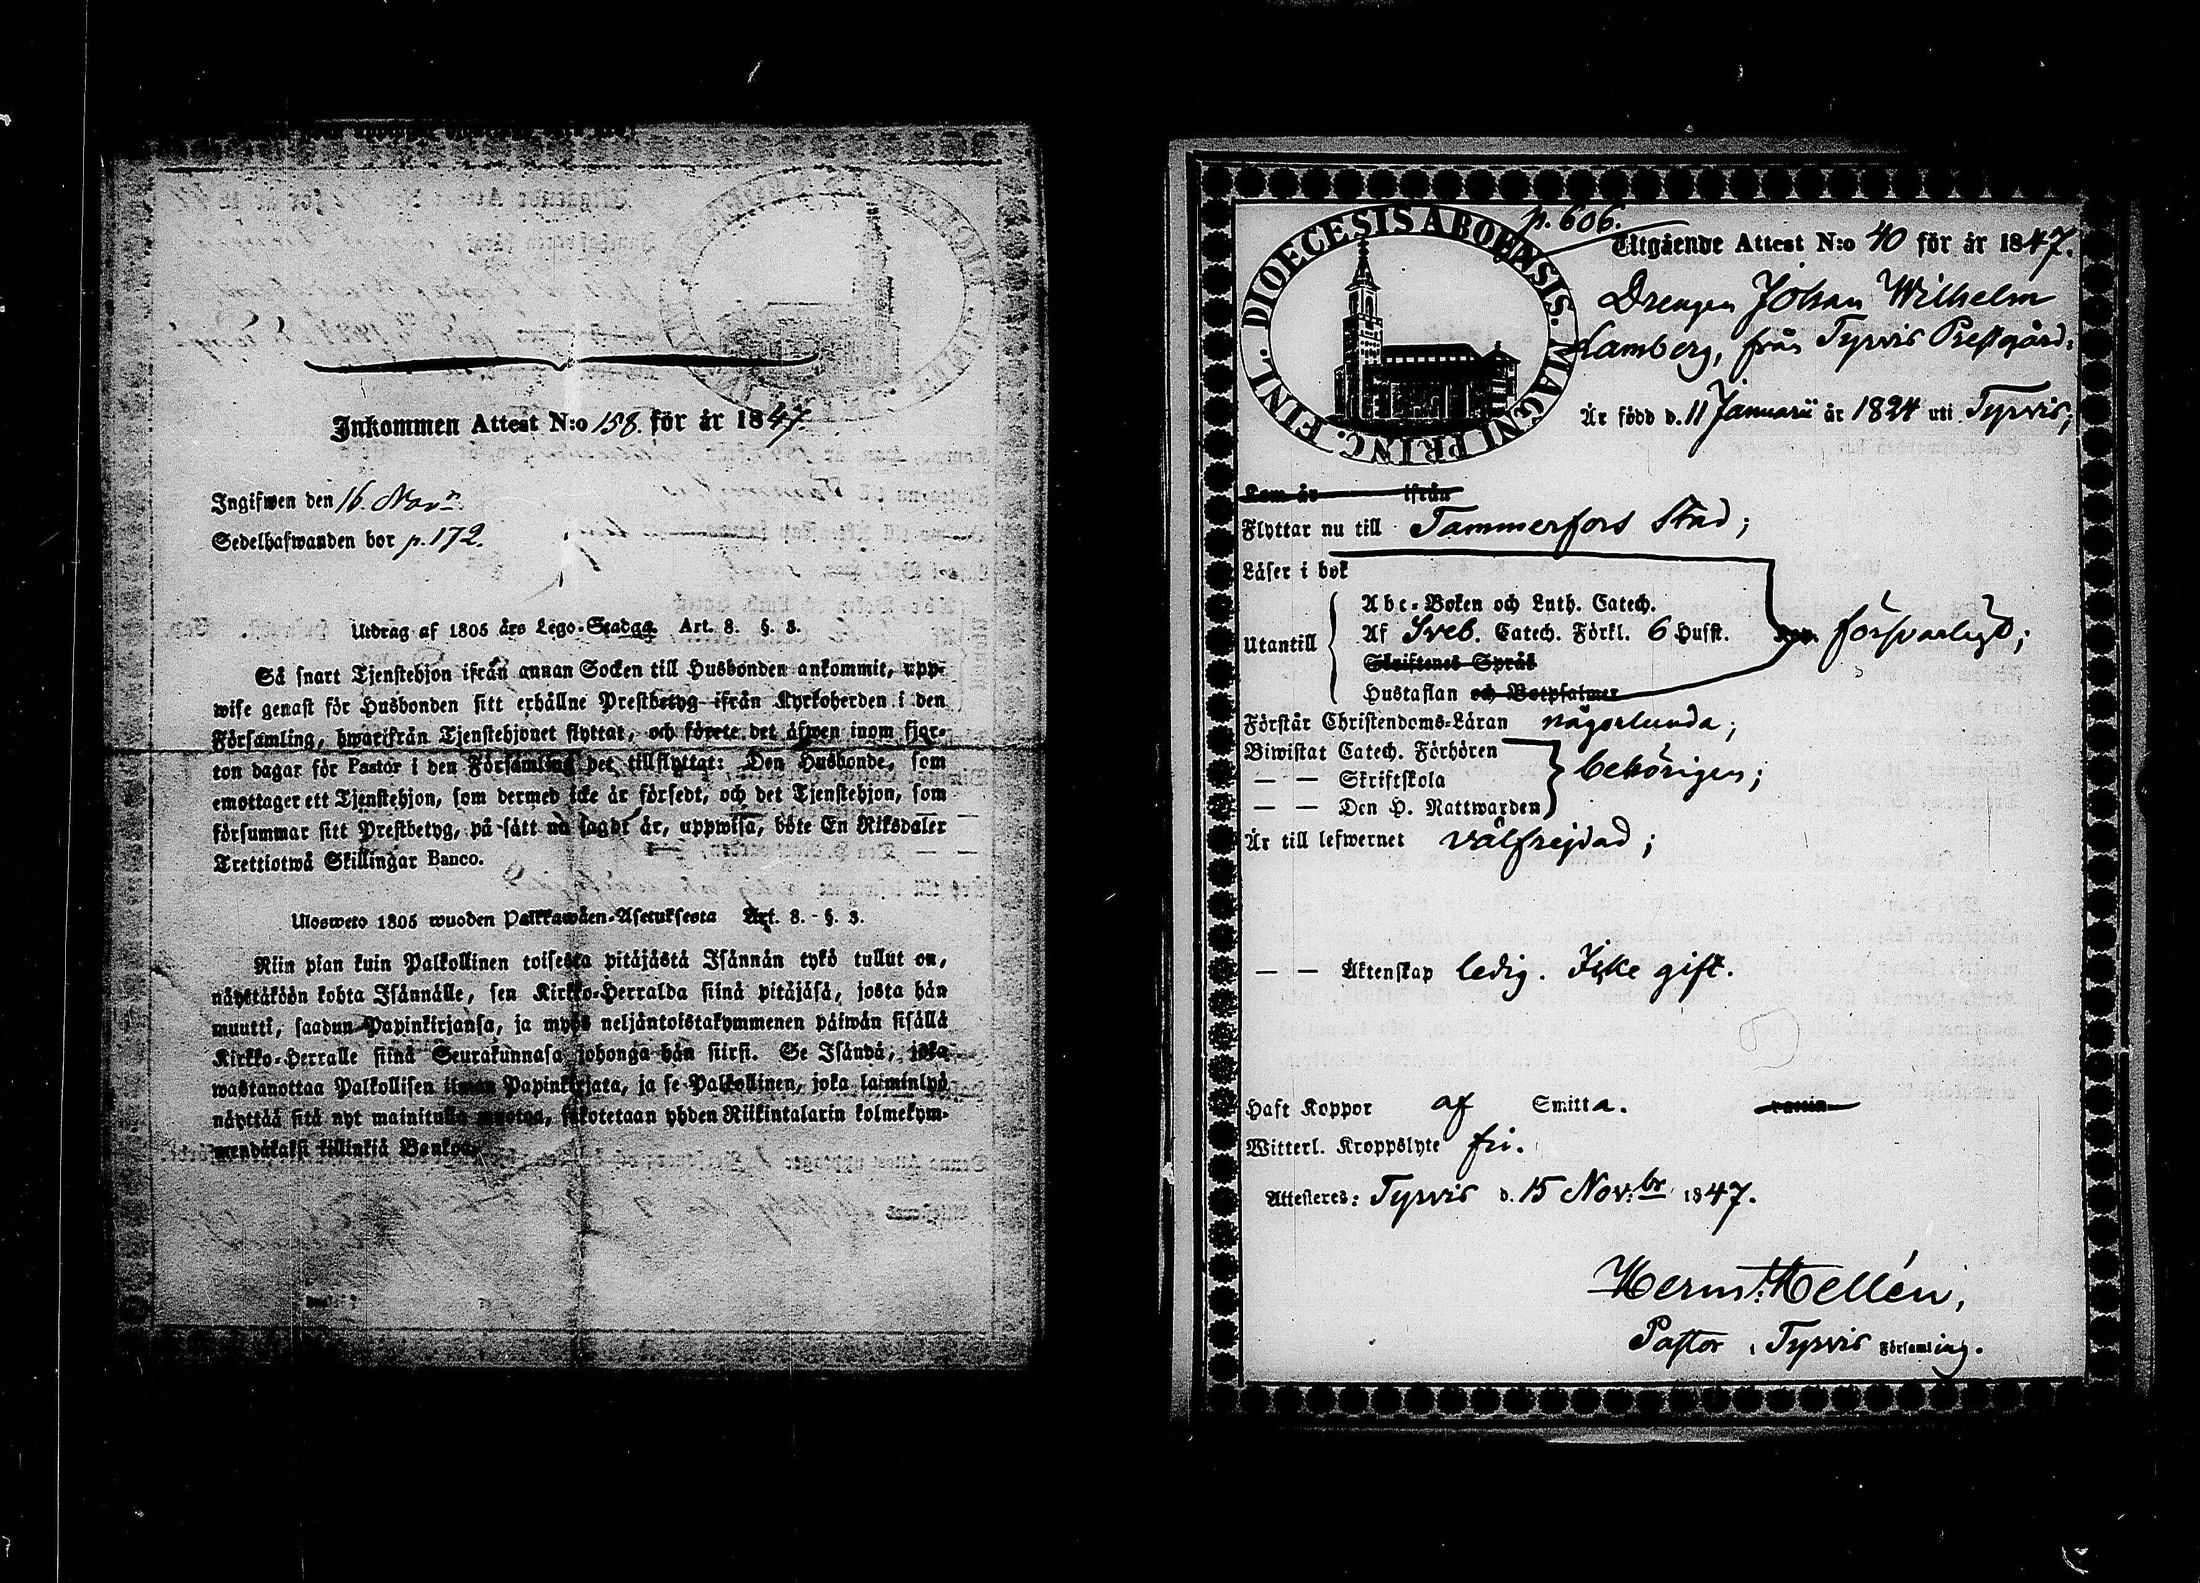 Inkommen Attest N:o 158. för år 1847
Ingifwen den 16. Nov
Sedelhafwanden bor p. 172.
Utdrag af 1805 års Lego-Stadga Art. 8. §. 3.
Så snart Tjenstehjon ifrån annan Socken till Husbonden ankommit, upp-
wise genast för Husbonden sitt erhållne Prestbetyg ifrån Kyrkoherden i den
Församling, hwarifrån Tjenstehjonet flyttat, och förete det äfwen inom fjor-
ton dagar för Pastor i den Församling det tillflyttat: Den Husbonde, som
emottager ett Tjenstehjon, som dermed icke är försedt, och det Tjenstehjon, som
försummar sitt Prestbetyg, på sätt nu sagdt är, uppwisa, böte En Riksdaler
Trettiotwå Skillingar Banco.
Ulosweto 1805 wuoden Palkkawäen-Asetuksesta Art. 8. - §. 3.
Niin pian kuin Palkollinen toisesta pitäjästä Isännän tykö tullut on,
näyttäköön kohta Isännälle, sen Kirkko-Herralda siinä pitäjäsä, josta hän
muutti, saadun Papinkirjansa, ja myös neljäntoistakymmenen päiwän sisällä
Kirkko-Herralle siinä Seurakunnasa johonga hän siirsi. Se Isändä, joka
wastanottaa Palkollisen ilman Papinkirjata, ja se Palkollinen, joka laiminlyö
näyttää sitä nyt mainitulla muotoa, sakotetaan yhden Riikintalarin kolmekym-
mendäkaksi killinkiä Bankoa.
DIOECESIS ABOENSIS. MAGNI PRINC. FINL.
p. 606.
Utgående Attest N:o 40 för år 1847.
Drengen Johan Wilhelm
Lamberg, från Tyrvis Prestgård.
Är född d. 11 Januarii år 1824 uti Tyrvis;
Kom år ifrån
Flyttar nu till Tammerfors Stad;
Läser i bok
Utantill
Abc-Boken och Luth. Catech.
Af Sveb. Catech. Förkl. 6 Hufst.
Skriftenes Språk
Hustaflan och Botpsalmer
försvarligt;
Förstår Christendoms-Läran någorlunda;
Biwistat Catech. Förhören
— — Skriftskola
— — Den H. Nattwarden
behörigen;
Är till lefwernet välfrejdad;
— — Äktenskap ledig. Icke gift.
Haft Koppor af Smitta. vaccin
Witterl. Kroppslyte fri.
Attesteres: Tyrvis d. 15 Nov:br 1847.
Herm: Hellén,
Pastor i Tyrvis Församling.